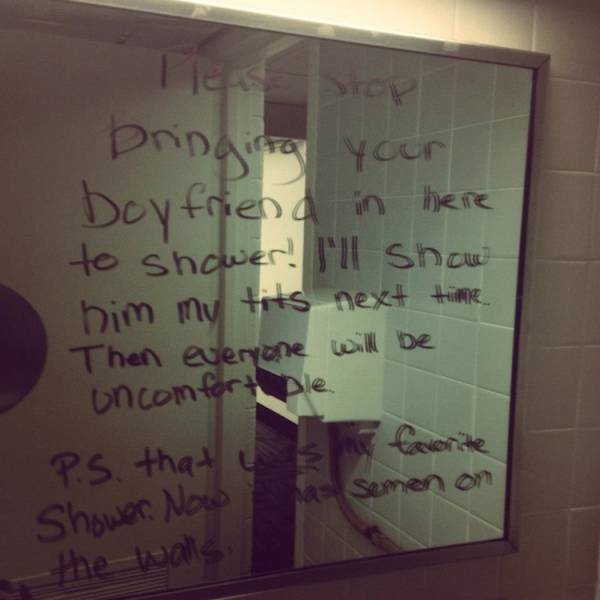 Please stop
bringing your
boyfriend in here
to shower! I'll show
him my tits next time.
Then everyone will be
uncomfortable.
P.S. that was my favorite
Shower. Now has semen on
the walls.